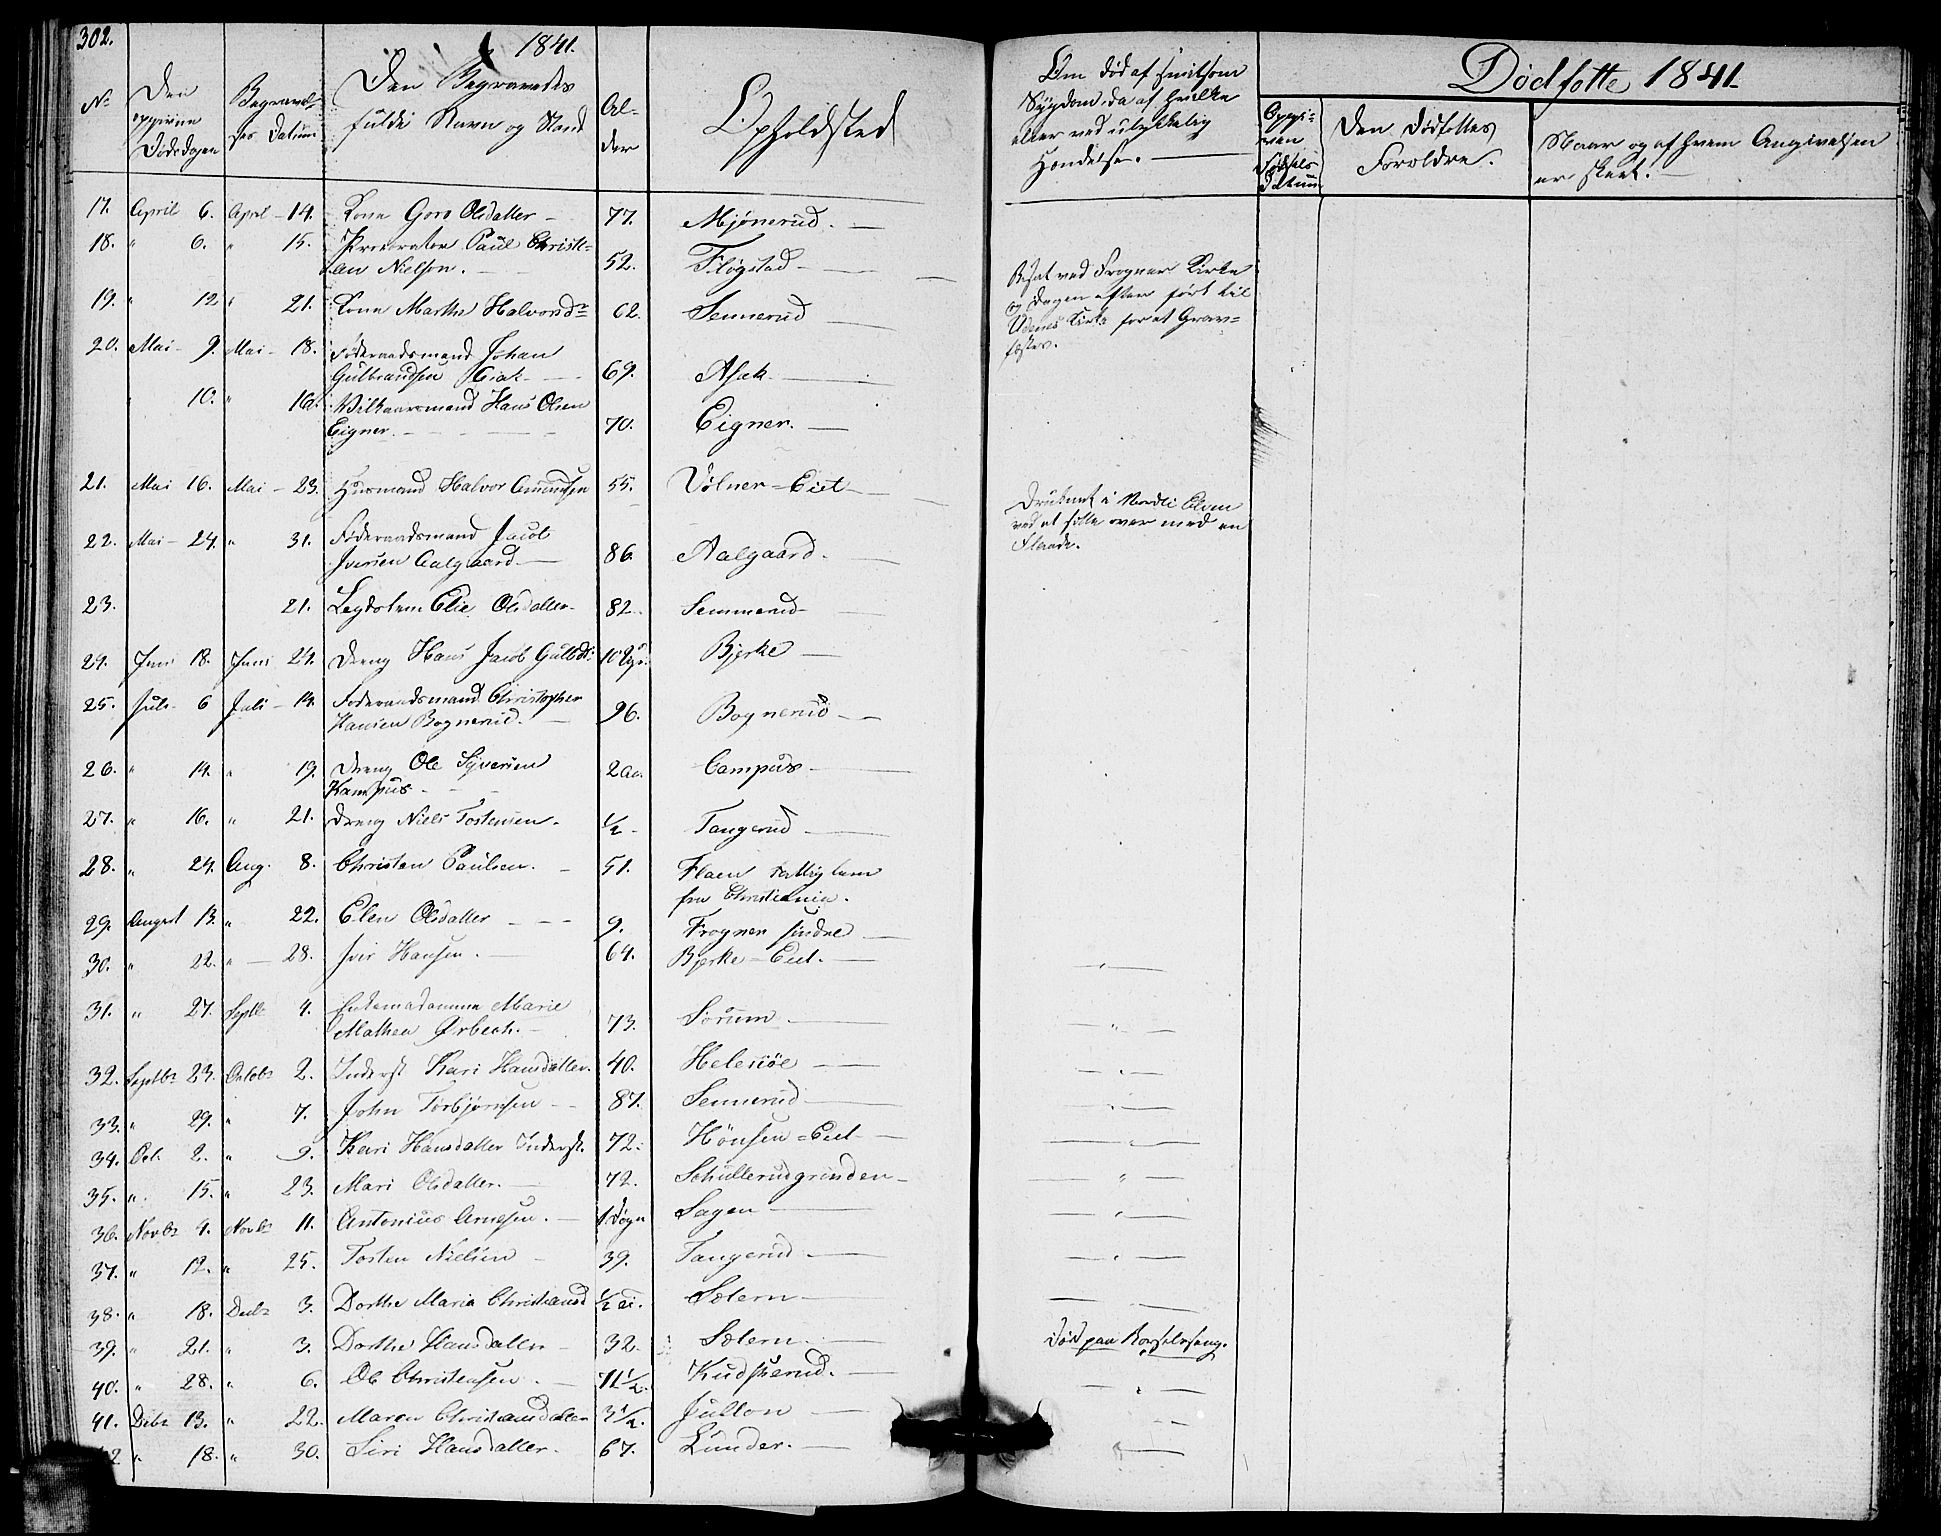 302.
1841.
No
Den opgivne Dødsdagen
Begravelses Datum
Den Begravedes fulde Navn og Stand
Alder
Opholdsted
Om død af smitsom
Sygdom, da af hvilken
eller ved ulykkelig
Hændelse.
Dødfødte 1841.
Opgiven Fødsels Datum
Den Dødfødtes Forældre.
Naar og af hvem Angivelsen
er skeet.
17. April 6. April 14. Kone Goro Olsdatter 77. Mjønerud.
18. " 6. " 15. Procurator Paul Christi-
an Nielsen. 52. Fløgstad
Bisat ved Frogner Kirke
og Dagen efter ført til
Udenes Kirke for at Grav-
fæstes.
19. " 12 " 21. Kone Marthe Halvorsd 62. Sennerud
20. Mai 9. Mai 18. Føderaadsmand Johan
Gulbrandsen Asak 69. Asak
10. " 16. Vilkaarsmand Hans Olsen
Eigner. 70. Eigner.
21. Mai 16. Mai 23. Husmand Halvor Amundsen 55. Vølner-Eiet
Druknet i Nordli Elven
ved at falde over med en
Flaade.
22. Mai 24. " 31. Føderaadsmand Jacob
Iversen Aalgaard 86. Aalgaard.
23. 21. Legdslem Elie Olsdatter 82. Semmerud
24. Juni 18. Juni 24. Dreng Hans Jacob Gulbds. 10 Uger Bjerke
25. Juli 6 Juli 14. Føderaadsmand Christopher
Hansen Bognerud. 96. Bognerud
26. " 14. " 19. Dreng Ole Syversen
Kampus 2 Aar Campus
27. " 16. " 21. Dreng Niels Tostensen. ½ Tangerud
28. " 24. Aug. 8. Christen Paulsen. 51. Flaen Fattiglem
fra Christiania.
29. August 13. " 22. Elen Olsdatter 9. Frogner søndre
30. " 22. " 28. Iver Hansen. 64. Bjerke-Eiet. "
31. " 27. Septb 4. Enkemadamme Marie
Mathea Ørbech. 73. Sørum "
32. Septbr 23. Octobr 2. Inderst Kari Hansdatter. 40. Helesiøe "
33. " 29. " 7. John Torbjørnsen 87. Sennerud "
34. Oct. 2. " 9. Kari Hansdatter Inderst. 72. Hønsen-Eiet "
35. " 15. " 23. Mari Olsdatter. 72. Schullerudgrinden "
36. Novbr 4. Novbr 11. Antonius Arnesen. 1 Døgn Sagen "
37. " 12. " 25. Tosten Nielsen 39. Tangerud "
38. " 18. Decbr 3. Dorthe Maria Christiansd ½ Sætern "
39. " 21. " 3. Dorthe Hansdatter 32. Sætern. Død paa Barselseng.
40. " 28. " 6. Ole Christensen. 71½. Kudskerud. "
41. Decbr 13. " 22. Maren Christiansdatter 3½. Julton "
42 " 18. " 30. Siri Hansdatter. 67. Lunder. "